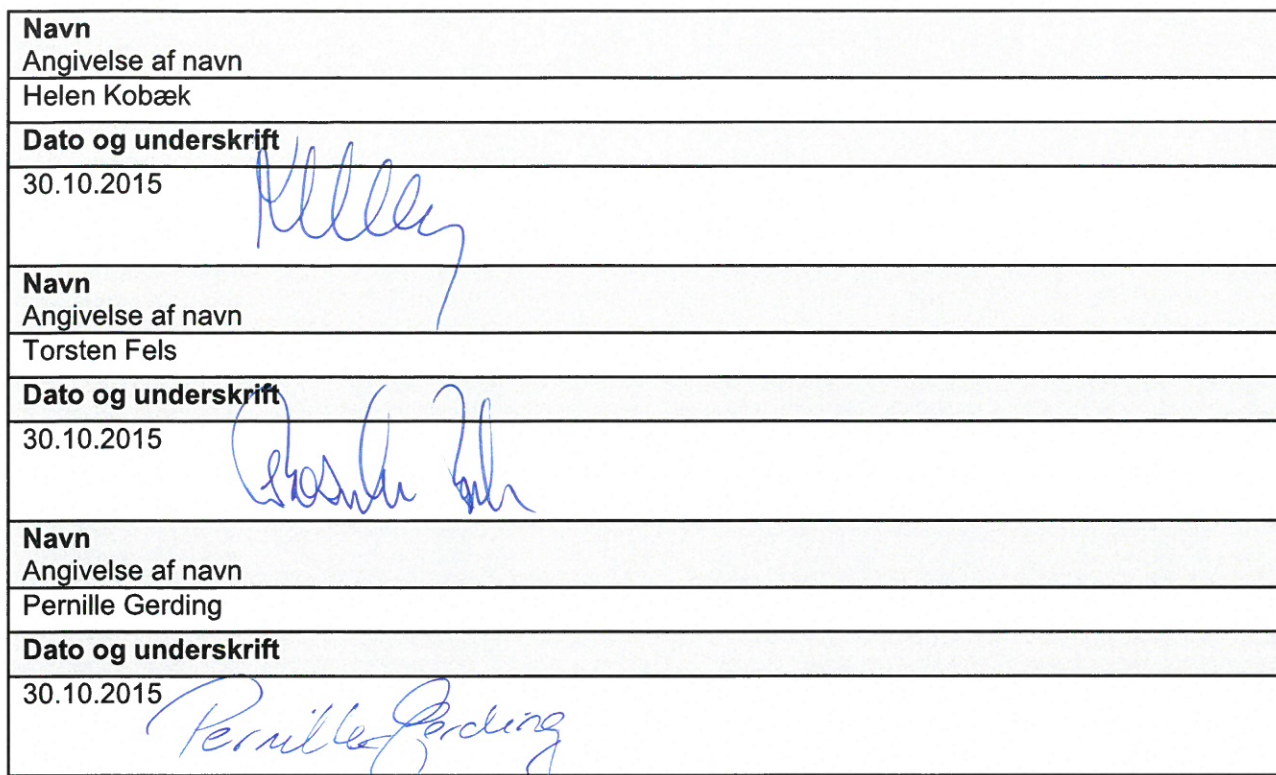 Navn
Angivelse af navn
Helen Kobæk
Dato og underskrift
30.10.2015
Navn
Angivelse af navn
Torsten Fels
Dato og underskrift
30.10.2015
Navn
Angivelse af navn
Pernille Gerding
Dato og underskrift
30.10.2015 Pernille Gerding